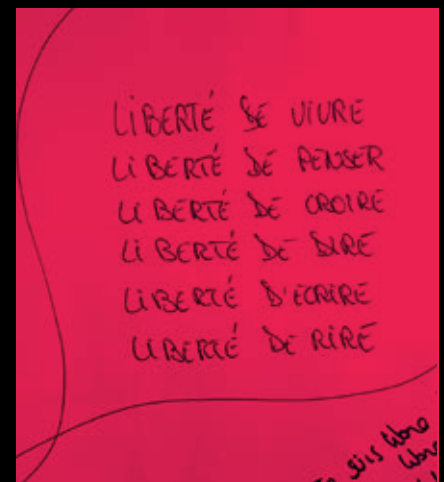 LIBERTÉ DE VIVRE
LIBERTÉ DE PENSER
LIBERTÉ DE CROIRE
LIBERTÉ DE DIRE
LIBERTÉ D'ECRIRE
LIBERTÉ DE RIRE
suis libre